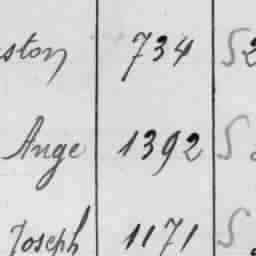 ston 734 S 2
Ange 1392 S
Joseph 1171 S